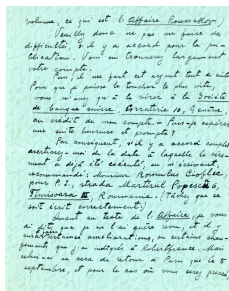 volume, ce qui est l'Affaire Roussakov.
Veuillez donc ne pas me faire des
difficultés, s'il y a accord pour la pu-
blication. Vous en trouverez largement
votre compte.
Puis, il me faut cet argent tout de suite
Pour que je puisse le toucher le plus vite,
vous n'avez qu'à le virer à la Société
de banque suisse, Corraterie 10, Genève
au crédit de mon compte. Puis-je espérer
une suite heureuse et prompte?
Par conséquent, s'il y a accord complet
avertissez-moi de la date à laquelle le vire-
ment a déjà été exécuté, en m'écrivant,
recommandé: Monsieur Romulus Cioflec
pour P.I., strada Martirul Popescu 6,
Timisoara III, Roumanie. (Tâchez que ce
soit écrit correctement)
Quant au texte de l'Affaire, je vous
ai dit que je n'ai guère rien, et il y
aurait certaines améliorations, ou certains chan-
gements que j'ai indiqués à Robertfrance. Mais
celui-ci ne sera de retour à Paris que le 5
septembre, et pour le cas où vous serez pressé,